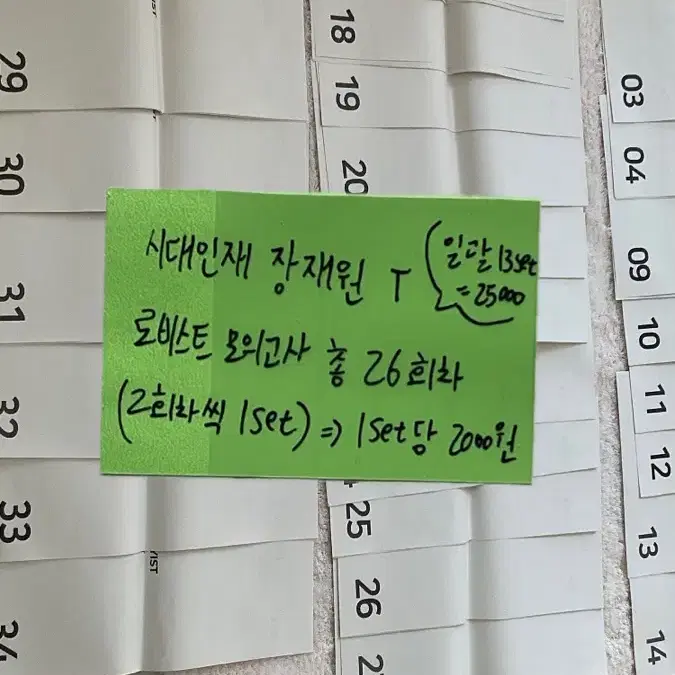 시대인재 장재원 T (일괄 13set
= 25000
로비스트 모의고사 총 26회차
(2회차씩 1set) => 1set당 2000원
29
30
31
32
33
34
IST
18
19
20
25
26
03
04
09
10
11
12
13
14